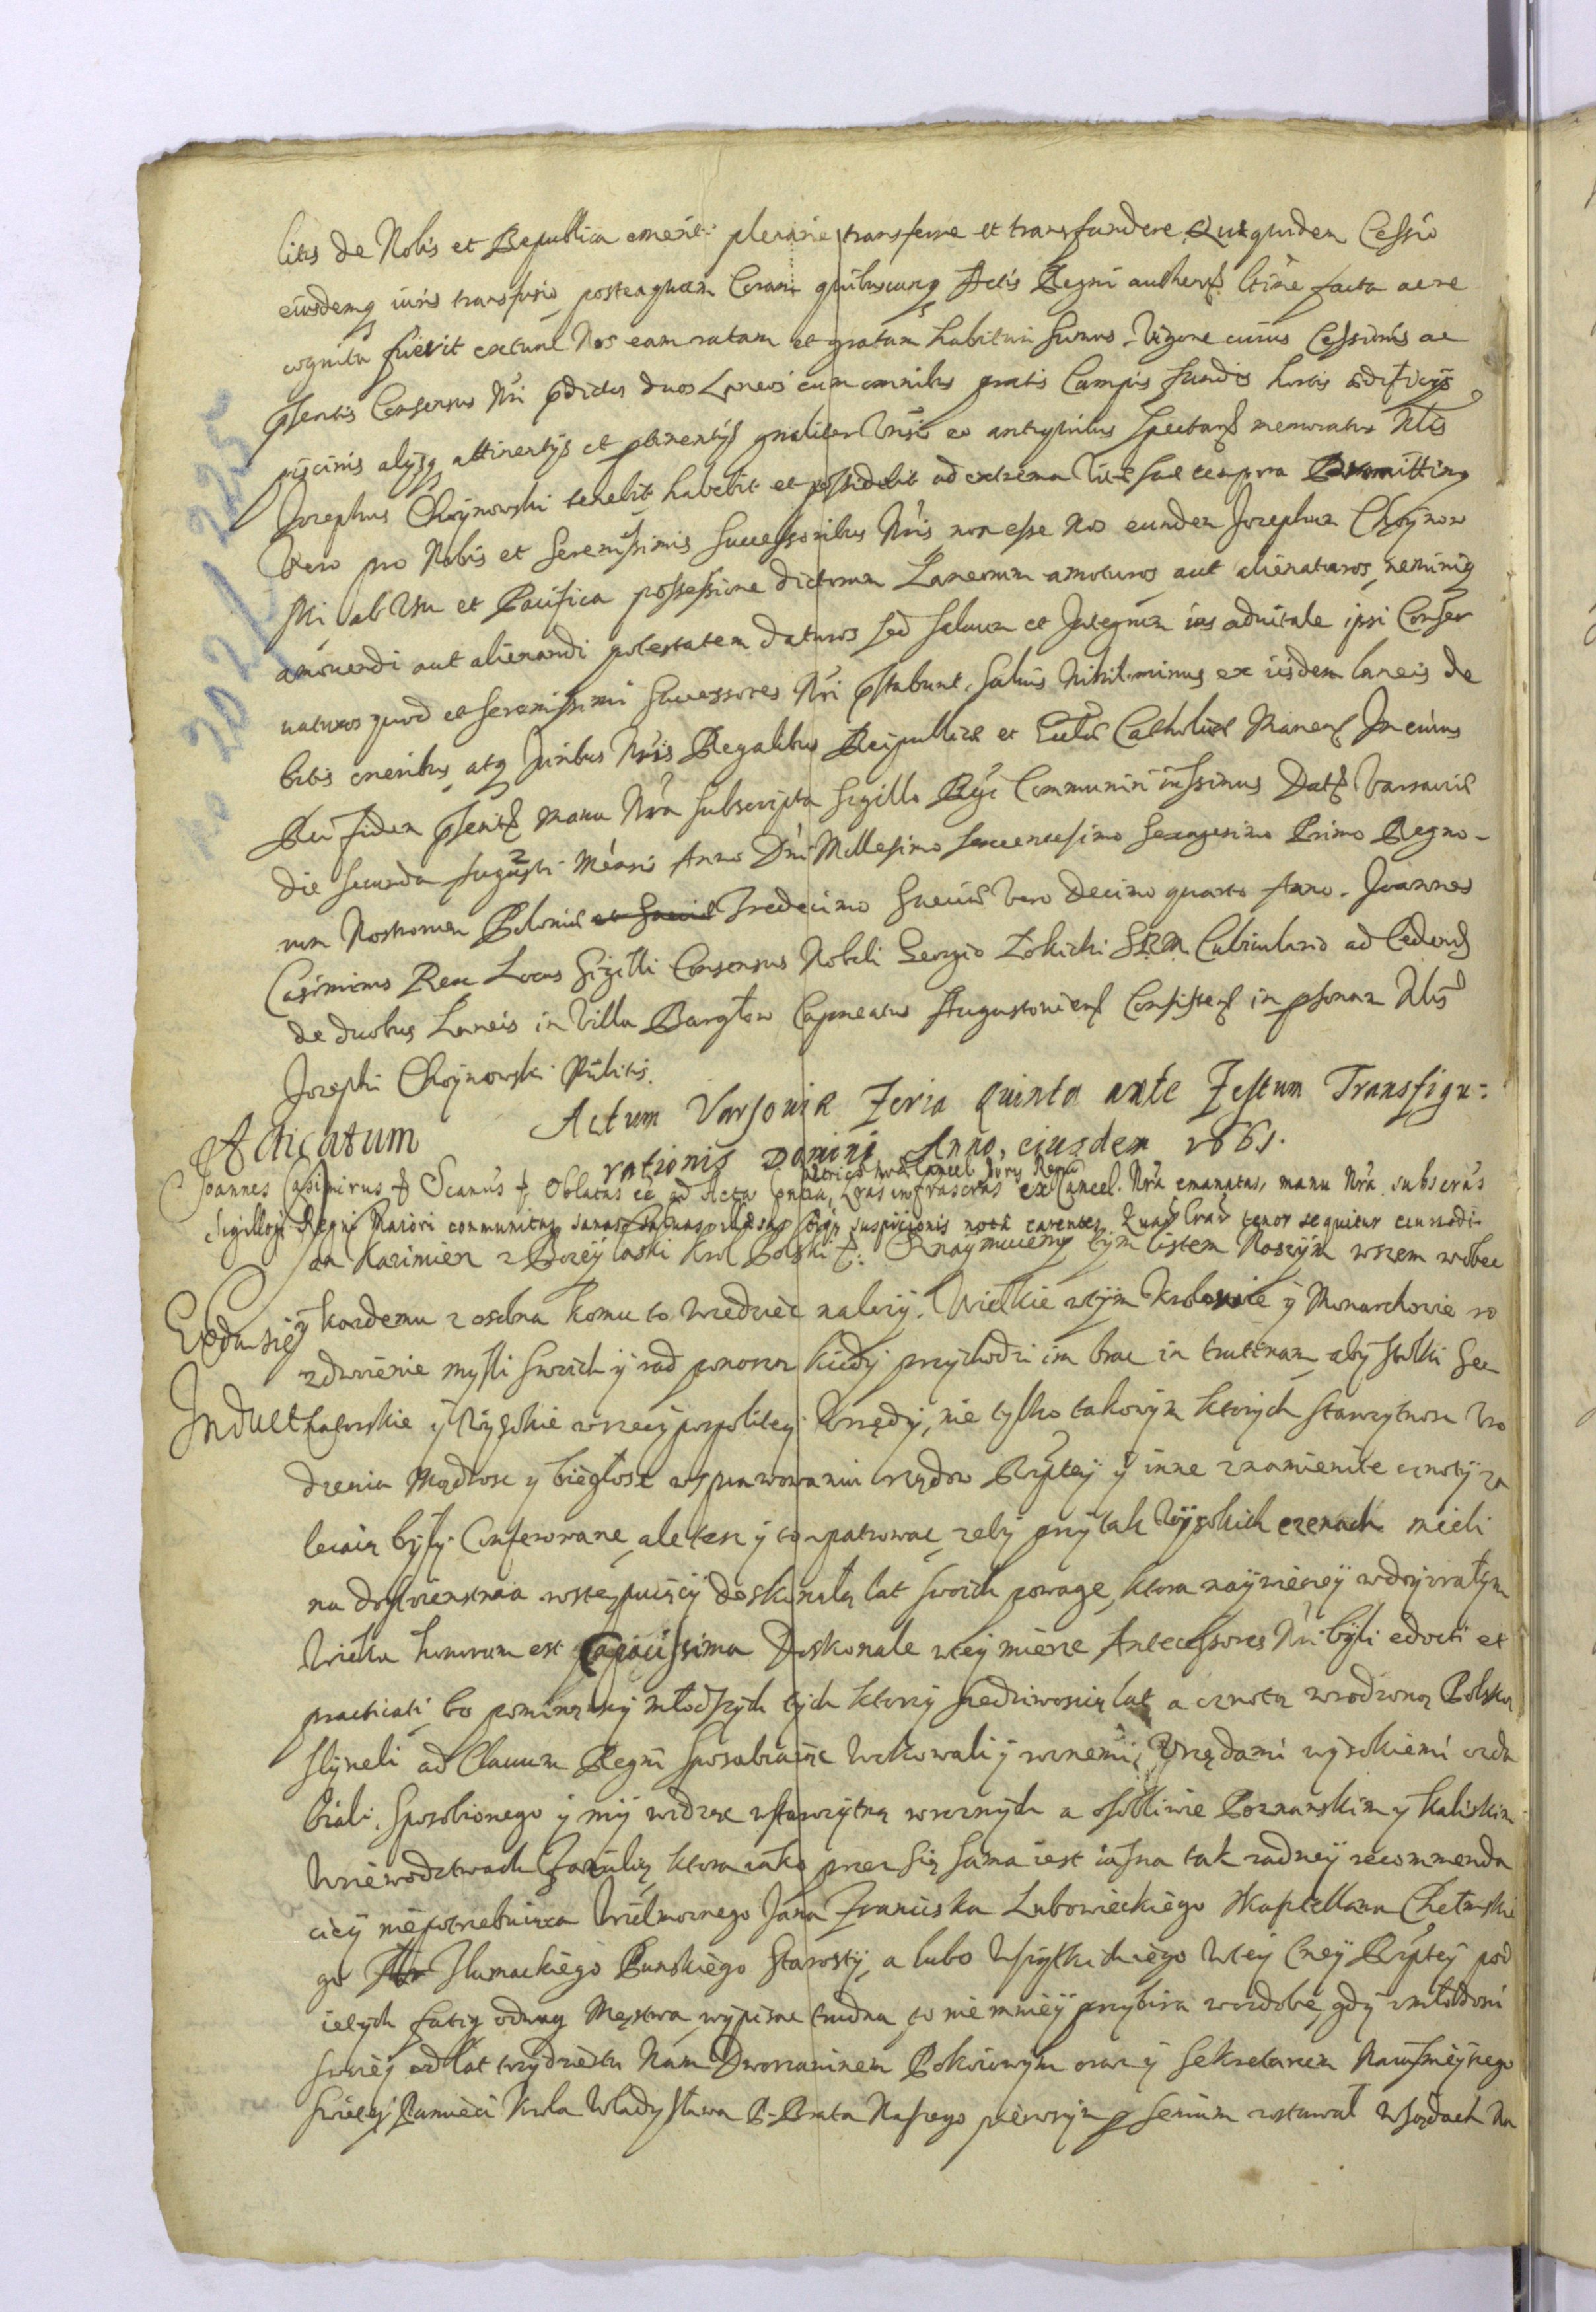 litis de Nobis et Republica emeriti plenarie transferre et transfundere Quaequidem Cessio
eiusdemq iuris transfusio posteaquam Coram quibuscunq Actis Regni authen ltime facta ac re
cognita fuerit extunc Nos eam ratam et gratam habituri sumus. Vigore cuius Cessionis ac
pſentis Consensus Nri pdictos duos Laneos cum omnibus pratis Campis fundis hortis ędificijs
piscinis alijsq attinentijs et ptinentijs gnaliter Vnisis ex antiquitus spectan memoratus Nlis
Josephus Choynowski tenebit habebit et possidebit ad extrema vitae suae tempora Promittimg
Vero pro Nobis et Serenissimis Successoribus Nris non esse Nos eundem Josephum Choynow
ski ab Vsu et Pacifica possessione dictorum Laneorum amoturos aut alienaturos neminiq
amouendi aut alienandi potestatem daturos sed saluum et Integrum ius aduitale ipsi Conser
uaturos quod et Serenissimi Successores Nri pstabunt. Saluis Nihilominus ex iisdem laneis de
bitis oneribus, atq Juribus Nris Regalibus Reipublicae et Catholicae Manen In cuius
Rei fidem pſentes Manu Nra subscriptas Sigillo Communiri iussimus Dat Varsauiae
die Secunda Augusti Mensis Anno Dni Millesimo Sexcentesimo Sexagesimo Primo Regno-
rum Nostrorum Poloniae et Sueciae Tredecimo Sueciae Vero decimo quarto Anno. Joannes
Casimirus Rex Locus Sigilli Consensus Nobili Georgio Zokicki S.R.M. Cubiculario ad Cedend
de duobus Laneis in Villa Bargłow Capneatus Augustouien Consisten in psonam Nlis
Josephi Choynowski Militis.
Acticatum Actum Varsouiae Feria quinta ante Festum Transfigu=
rationis Domini Anno, eiusdem 1661.
Joannes Casimirus & Oblatas ee ad Acta Lras infrascras ex Cancel. Nra emanatas, manu Nra subscras
Sigilloq Regni Maiori communitas, sanas saluas illaesas oiq suspicionis nota carentes Quar Lrar tenor sequitur eiusmodi
Jan Kazimierz z Bożey łaski Krol Polski &. Oznaymuiemy tym listem Naszym wszem wobec
y każdemu z osobna komu to wiedziec należy. Wielkie w tym Krolowie y Monarchowie ro
zdwoienie mysli swoich y rad ponoszą kiedy przychodzi im brac in trutinam, aby stołki Sen
Indult atorskie y Wysokie w rzeczypospolitey Vrzędy, nie tylko takowym ktorych starzytnosc Vro
dzenia Mądrosc y biegłosc w sprawowaniu rządow Rzptey y inne znamienite cnoty za
lecaią były Conferowane, ale tesz y to upatrowac, zeby przy tak Wysokich cenach mieli
na dostoienstwa wstępuiący doskonałą lat swoich powagę, ktora naywięcey w doyrzałym
Wieku honorum est Capacissima Doskonale w tey mierze Antecessores Nri byli edocti et
practicati, bo pominąwszy młodszych tych ktorzy sędziwoscią lat a cnotą wrodzoną Polską
słyneli ad Clauum Regni sposabiaiąc Wokowali y rożnemi Vrzędami wysokiemi ozda
biali. Sposobionego y my widząc w starożytną w rożnych a osobliwie Poznanskim y Kaliskim
Woiewodztwach Familią, ktora iako przez się sama iest iasna tak żadney recommenda
ciey niepotrzebuiąca Wielmożnego Jana Franciska Lubowieckiego Kasztellana Chełmskie
go Tłumackiego Punskiego Starosty, a lubo Wszytkich iego w tey Rzptey pod
iętych fatig odwag Męstwa wypisac trudno, to niemniey przybiera w ozdobę, gdy z młodosci
swoiey od lat trzydziestu Nam Dworzaninem Pokoiowym oraz y Sekretarzem Naiasnieyszego
Swiętey Pamięci Krola Władysława P. Brata Naszego pierwszym p senium zostawał w Sądach Na